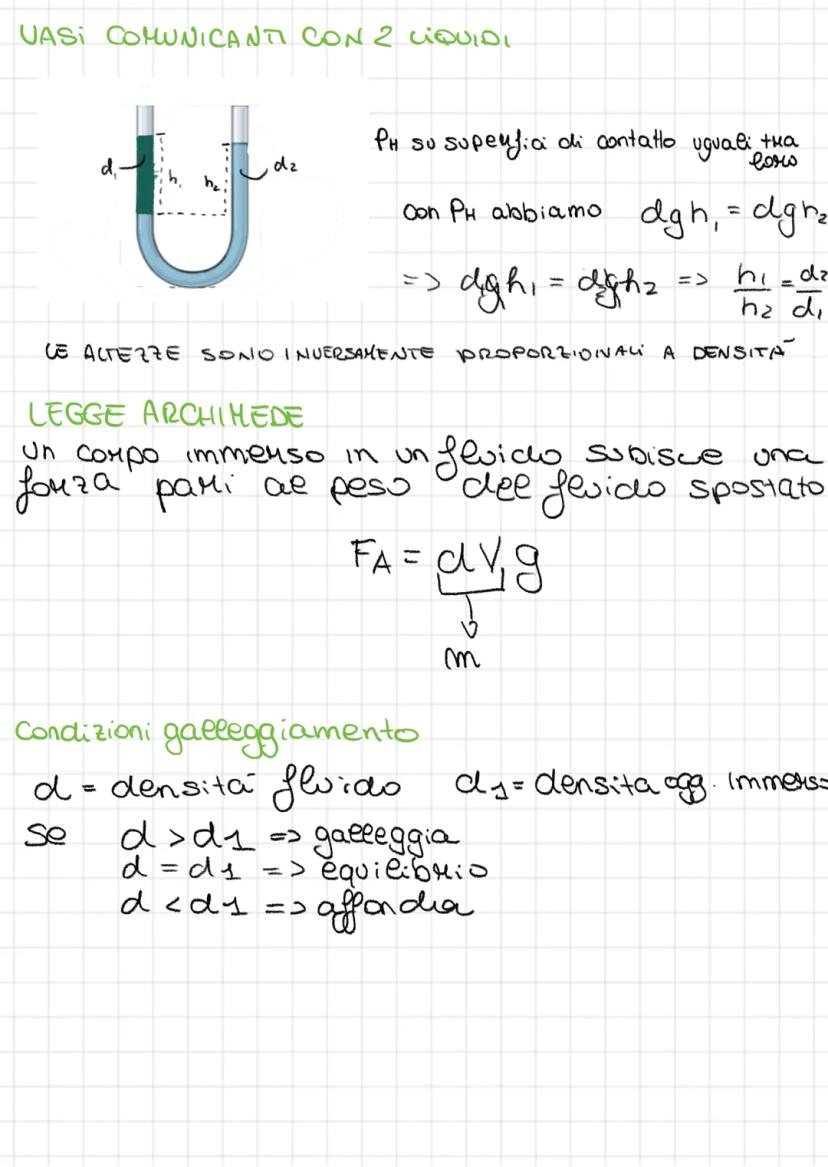 VASI COMUNICANTI CON 2 LIQUIDI
d₁ h₁ h₂ d₂
PH su superfici di contatto uguali tra loro
con PH abbiamo dgh₁ = dgh₂
=> d₁gh₁ = d₂gh₂ => h₁/h₂ = d₂/d₁
LE ALTEZZE SONO INVERSAMENTE PROPORZIONALI A DENSITÀ
LEGGE ARCHIMEDE
un corpo immerso in un fluido subisce una
forza pari al peso del fluido spostato
FA = dV₁g
m
Condizioni galleggiamento
d = densità fluido d1 = densita ogg. immerso
se d > d1 => galleggia
d = d1 => equilibrio
d < d1 => affonda